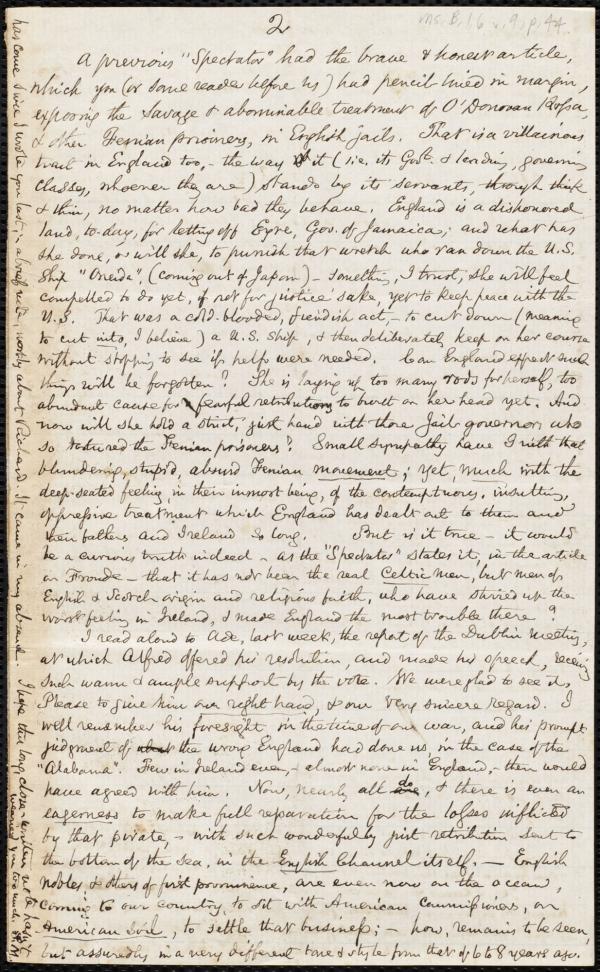 2
Ms. B.1.6 v.9, p.44
A previous "Spectator" had the brave & honest article,
which you (or some reader before us) had pencil lined in margin,
exposing the savage & abominable treatment of O'Donovan Rossa,
& other Fenian prisoners, in English jails. That is a villainous
trait in England too, - the way it (i.e. its Govt. & landing, governing
classes, whoever they are) stands by its servants, through thick
& thin, no matter how bad they behave. England is a dishonored
land, to-day, for letting off Eyre, Gov. of Jamaica; and what has
she done, or will she, to punish that wretch who ran down the U.S.
Ship "Oneida", (coming out of Japan) - something, I trust, she will feel
compelled to do yet, if not for justice' sake, yet to keep peace with the
U.S. That was a cold-blooded, fiendish act, - to cut down (meaning
to cut into, I believe) a U.S. Ship, & then deliberately keep on her course
without stopping to see if help were needed. Can England expect such
things will be forgotten? She is laying up too many rods for herself, too
abundant cause for fearful retribution to burst on her head yet. And
now will she hold a strict, just hand with those Jail-governors who
so tortured the Fenian prisoners? Small sympathy have I with that
blundering, stupid, absurd Fenian movement; yet, much with the
deep-seated feeling in their inmost being, of the contemptuous, insulting,
oppressive treatment which England has dealt out to them and
their fathers and Ireland so long. But is it true - it would
be a curious truth indeed - as the "Spectator" states it, in the article
on Froude - that it has not been the real Celtic men, but men of
English & Scotch origin and religious faith, who have stirred up the
worst feeling in Ireland, & made England the most trouble there?
I read aloud to Ade, last week, the report of the Dublin meeting,
at which Alfred offered his resolution, and made his speech, receiving
such warm & ample support by the vote. We were glad to see it.
Please to give him our right hand, & our very sincere regard. I
well remember his foresight, in the time of our war, and his prompt
judgment of the wrong England had done us, in the case of the
"Alabama". Few in Ireland even, - almost none in England, - then would
have agreed with him. Now, nearly all do, & there is even an
eagerness to make full reparation for the losses inflicted
by that pirate, - with such wonderfully just retribution sent to
the bottom of the sea, in the English Channel itself. - English
nobles & others of first prominence, are even now on the ocean,
coming to our country, to sit with American Commissioners, on
American Soil, to settle that business; - how, remains to be seen,
but assuredly in a very different tone & style from that of 6 to 8 years ago.
has come since I wrote you last, in a brief note, mostly about Richard. It came in my absence. I hope this long, close-written note has not
wearied you too much.